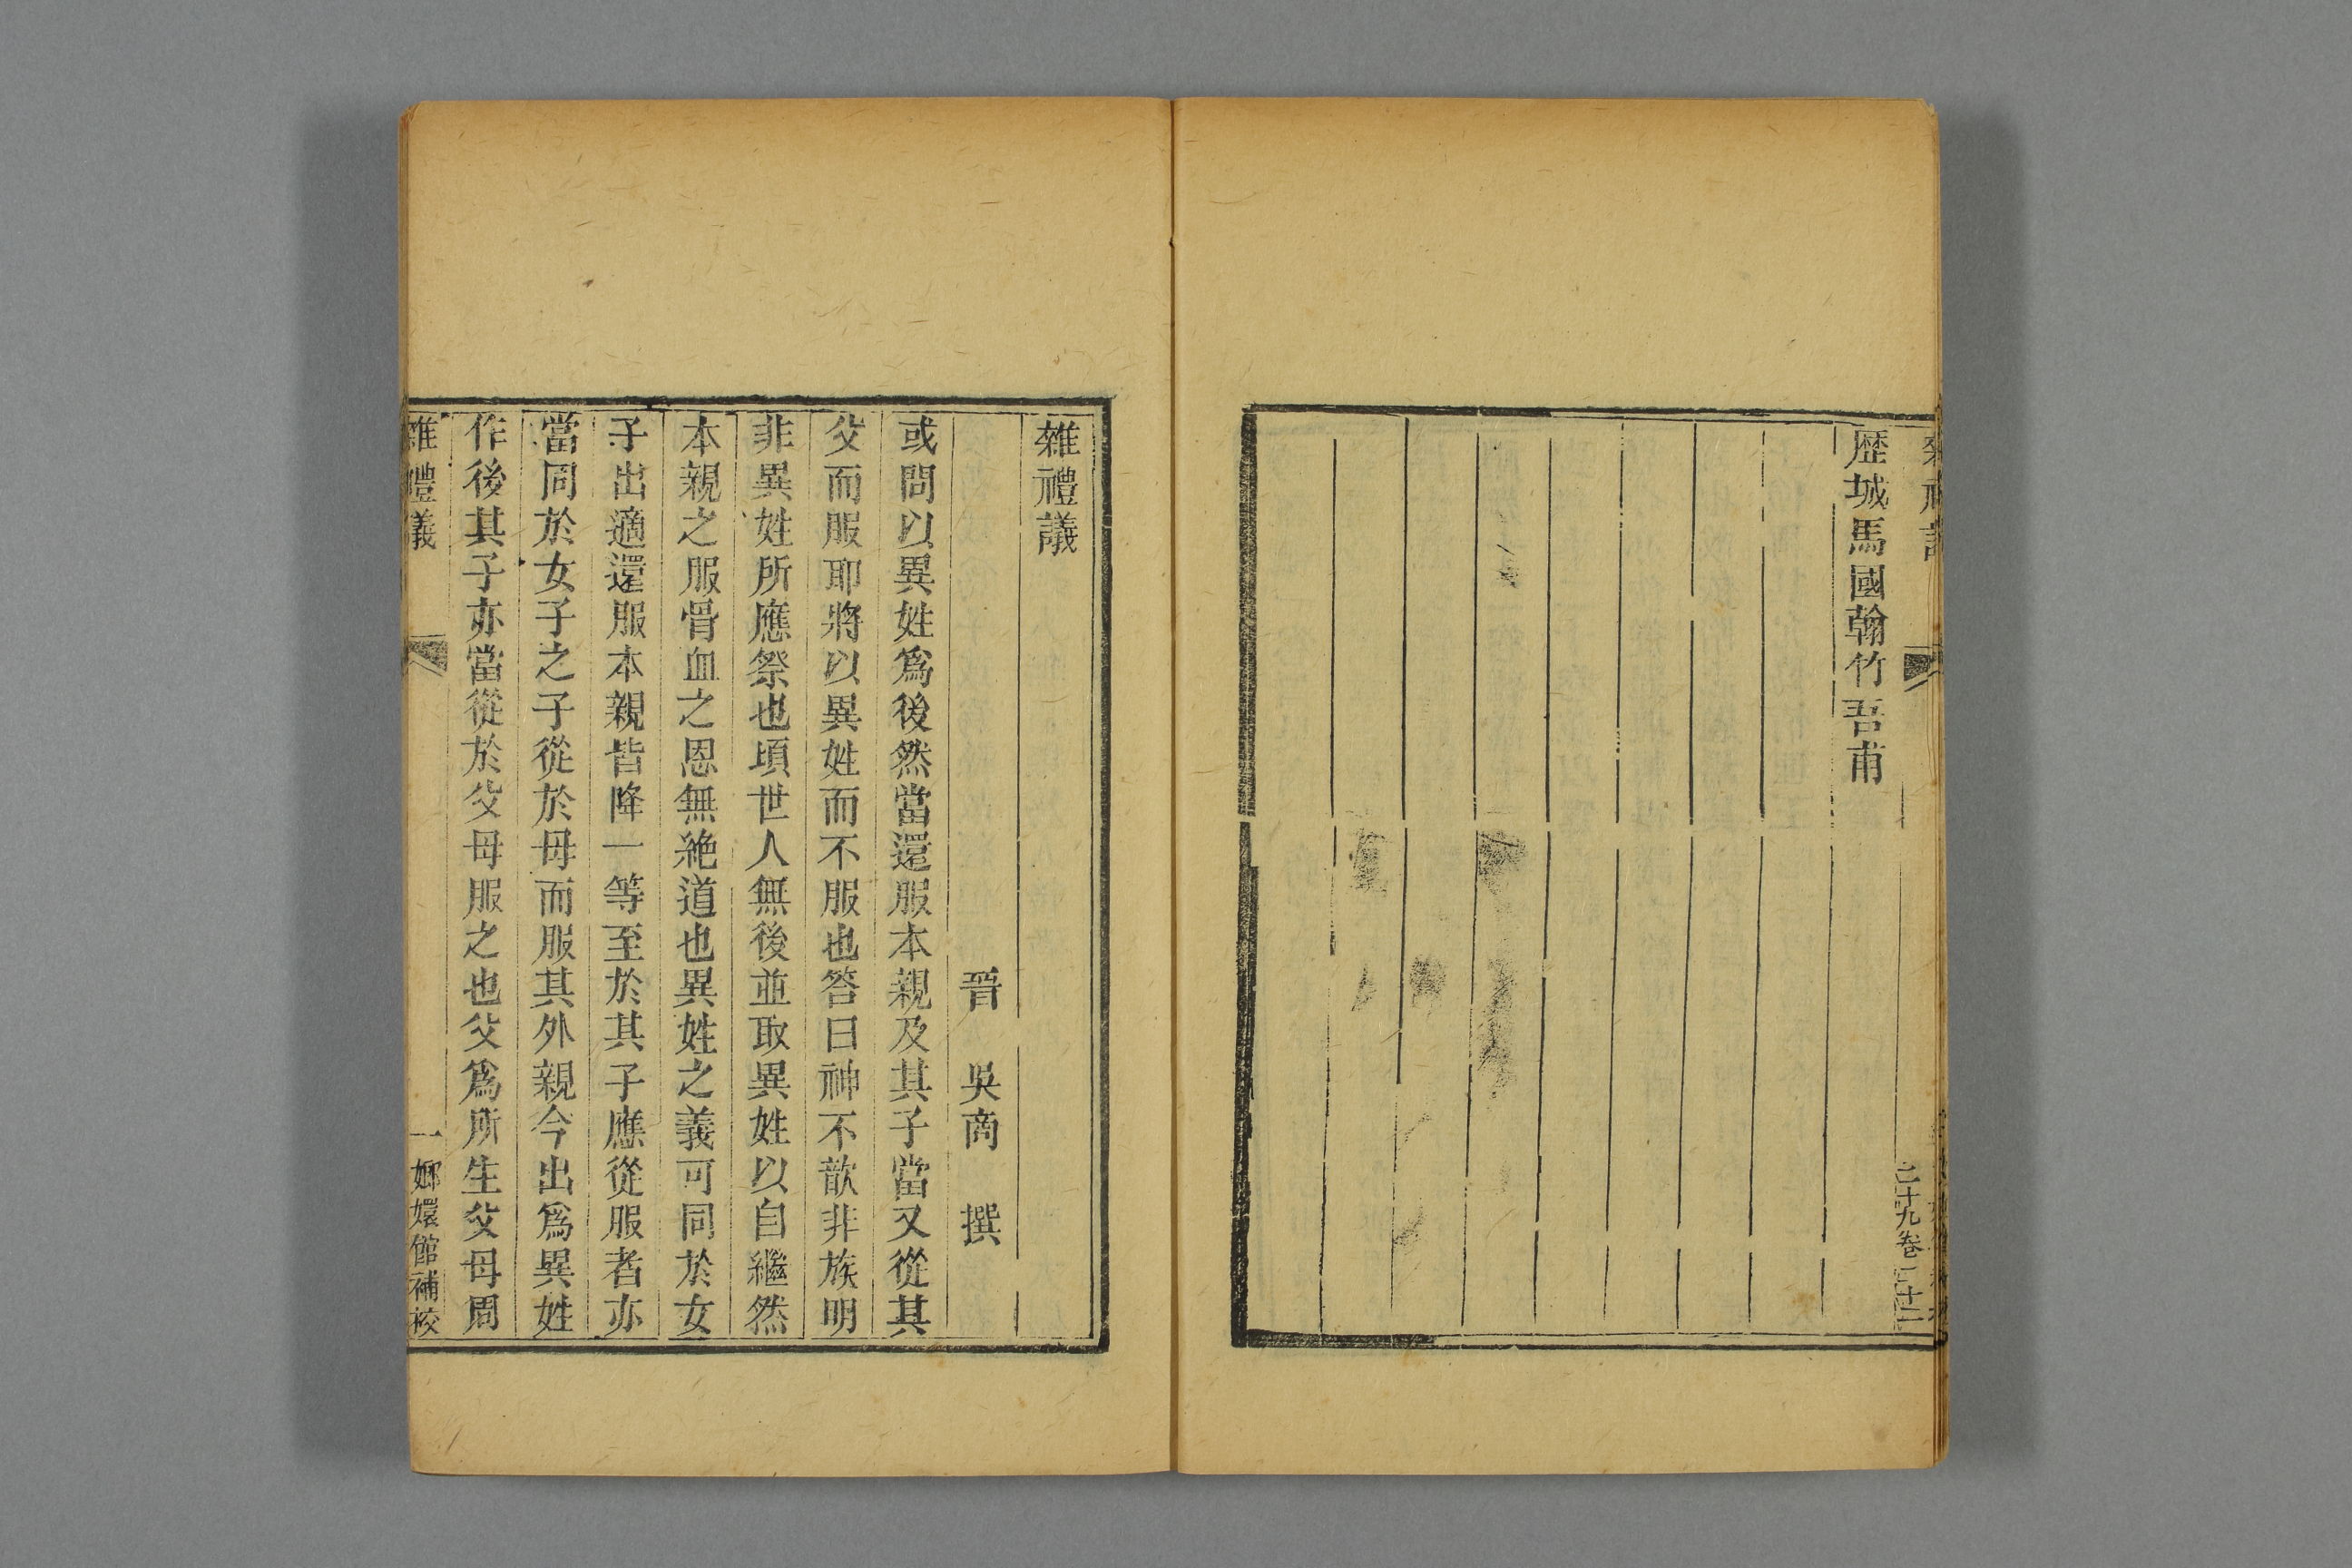 歴城馬國翰竹吾甫
之十九卷三十二
雜禮議
晉　吳商　撰
或問以異姓爲後然當還服本親及其子當又從其
父而服耶將以異姓而不服也答曰神不歆非族明
非異姓所應祭也頃世人無後並取異姓以自繼然
本親之服骨血之恩無絶道也異姓之義可同於女
子出適還服本親皆降一等至於其子應從服者亦
當同於女子之子從於母而服其外親今出爲異姓
作後其子亦當從於父母服之也父爲所生父母周
雜禮議　一　嫏嬛館補校